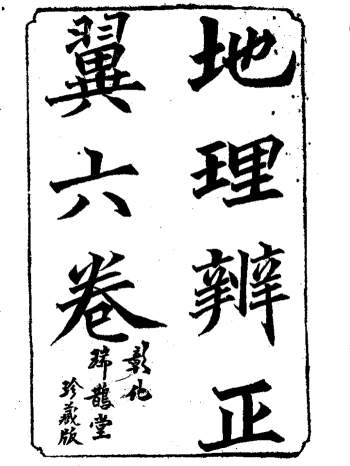 地理辨正
翼六卷
彰化
瑞鵲堂
珍藏版